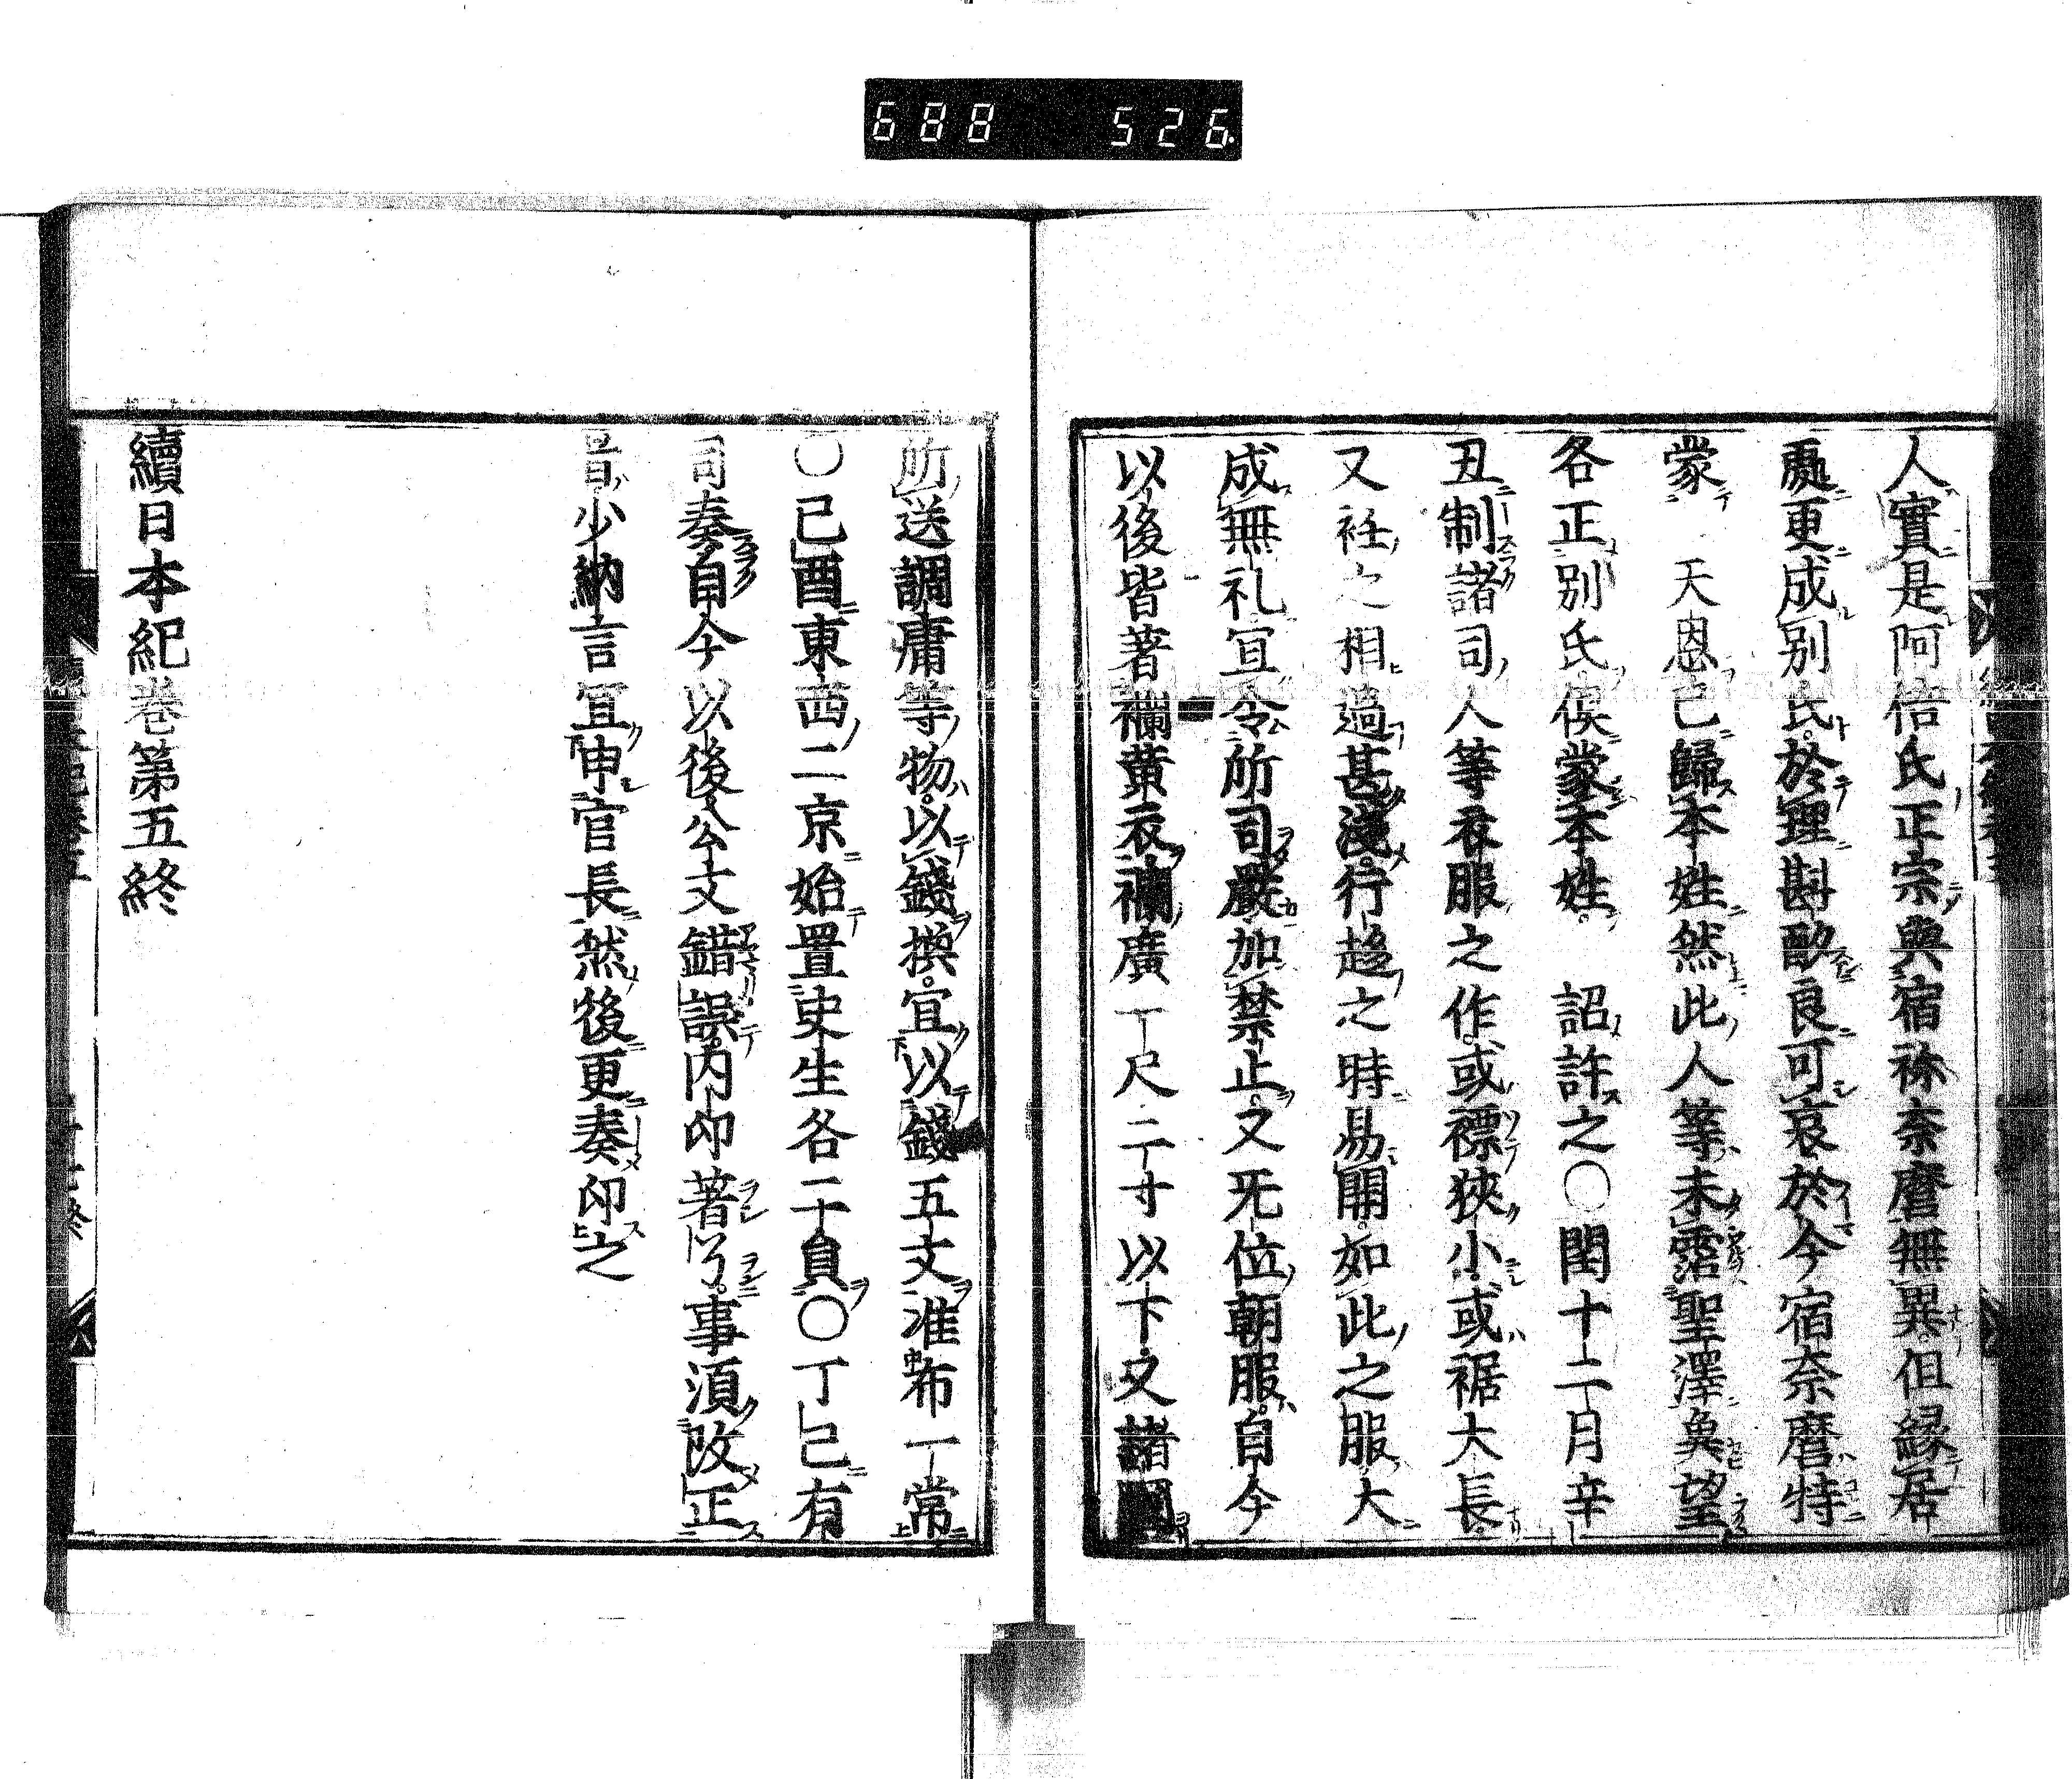 688 526
人實是阿倍氏正宗與宿祢奈麿無異但縁居
處更成別氏於理斟酌良可哀於今宿奈麿特
蒙 天恩已歸本姓然此人等未霑聖澤冀望
各正別氏俟蒙本姓 詔許之○閏十二月辛
丑制諸司人等衣服之作或褾狹小或裾大長
又衽之相過甚淺行趨之時易開如此之服大
成無礼宜令所司嚴加禁止又无位朝服自今
以後皆著襴黄衣襴廣一尺二寸以下又諸國
所送調庸等物以錢換宜以錢五文准布一常
○己酉東西二京始置史生各二員○丁巳有
司奏自今以後公文錯誤内印著了事須改正
者少納言宜申官長然後更奏印之
續日本紀巻第五終